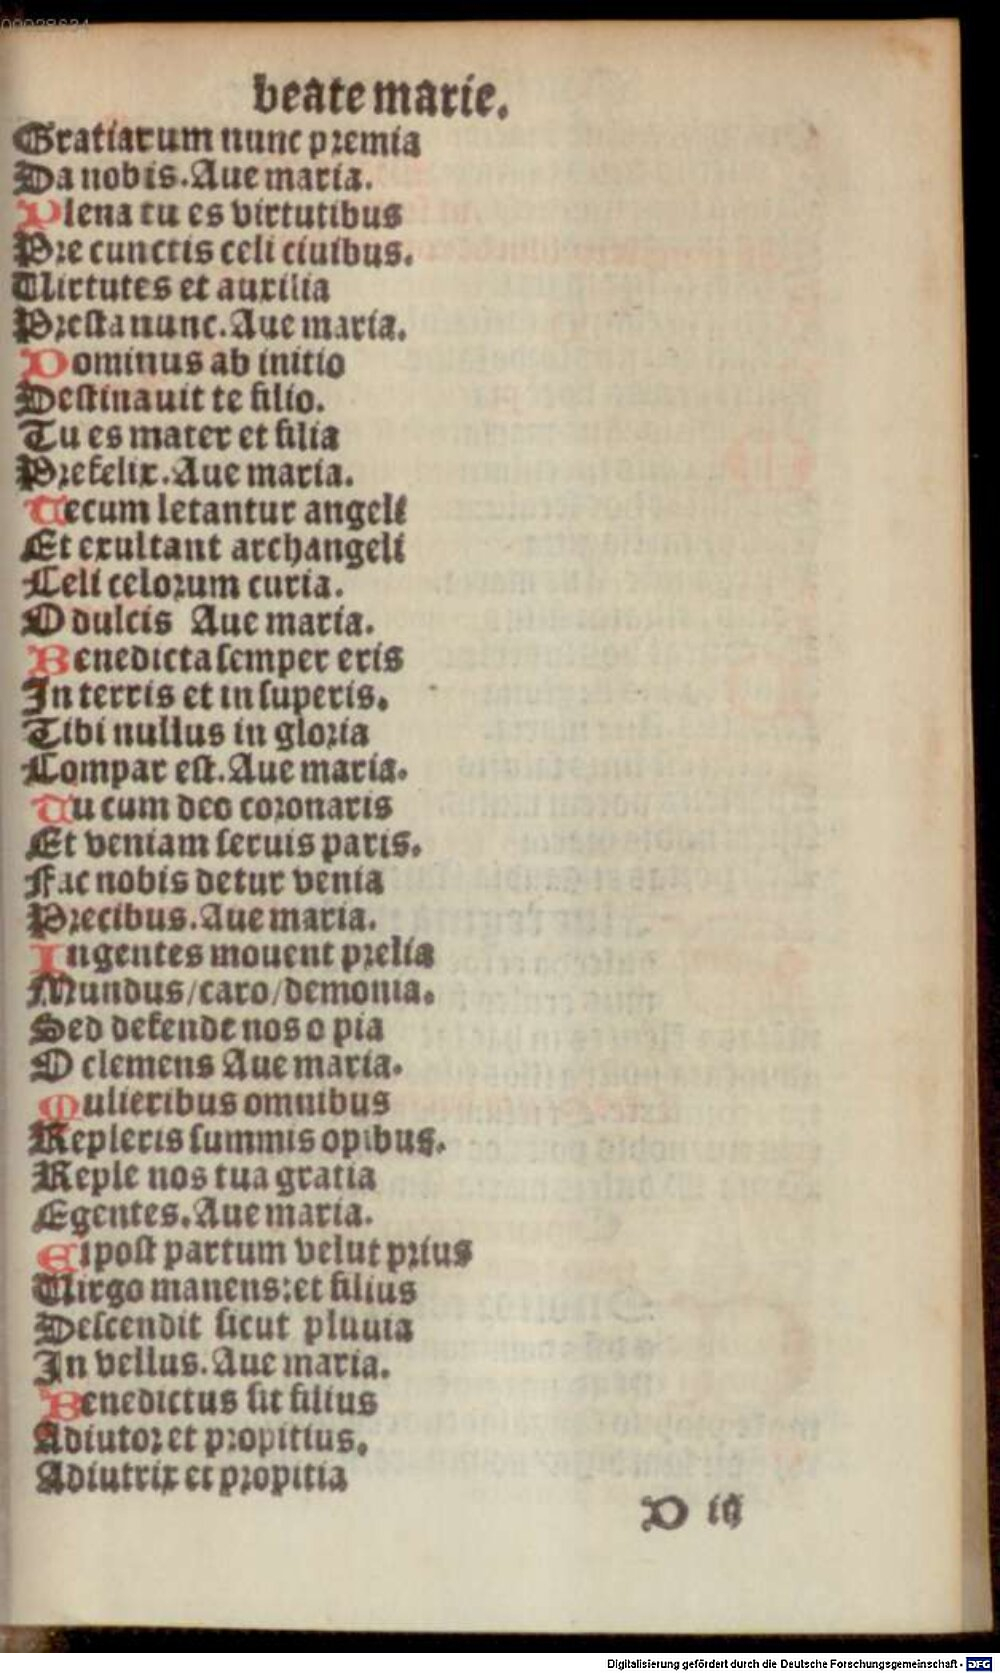 00028634
beate marie.
Gratiarum nunc premia
Da nobis. Aue maria.
Plena tu es virtutibus
Pre cunctis celi ciuibus.
Uirtutes et auxilia
Presta nunc. Aue maria.
Dominus ab initio
Destinauit te filio.
Tu es mater et filia
Prefelix. Aue maria.
Tecum letantur angeli
Et exultant archangeli
Celi celorum curia.
O dulcis Aue maria.
Benedicta semper eris
In terris et in superis.
Tibi nullus in gloria
Compar est. Aue maria.
Tu cum deo coronaris
Et veniam seruis paris.
Fac nobis detur venia
Precibus. Aue maria.
Ingentes mouent prelia
Mundus/caro/demonia.
Sed defende nos o pia
O clemens Aue maria.
Mulieribus omnibus
Repleris summis opibus.
Reple nos tua gratia
Egentes. Aue maria.
Ei post partum velut prius
Uirgo manens: et filius
Descendit sicut pluuia
In vellus. Aue maria.
Benedictus sit filius
Adiutor et propitius.
Adiutrix et propitia
D iij
Digitalisierung gefördert durch die Deutsche Forschungsgemeinschaft - DFG